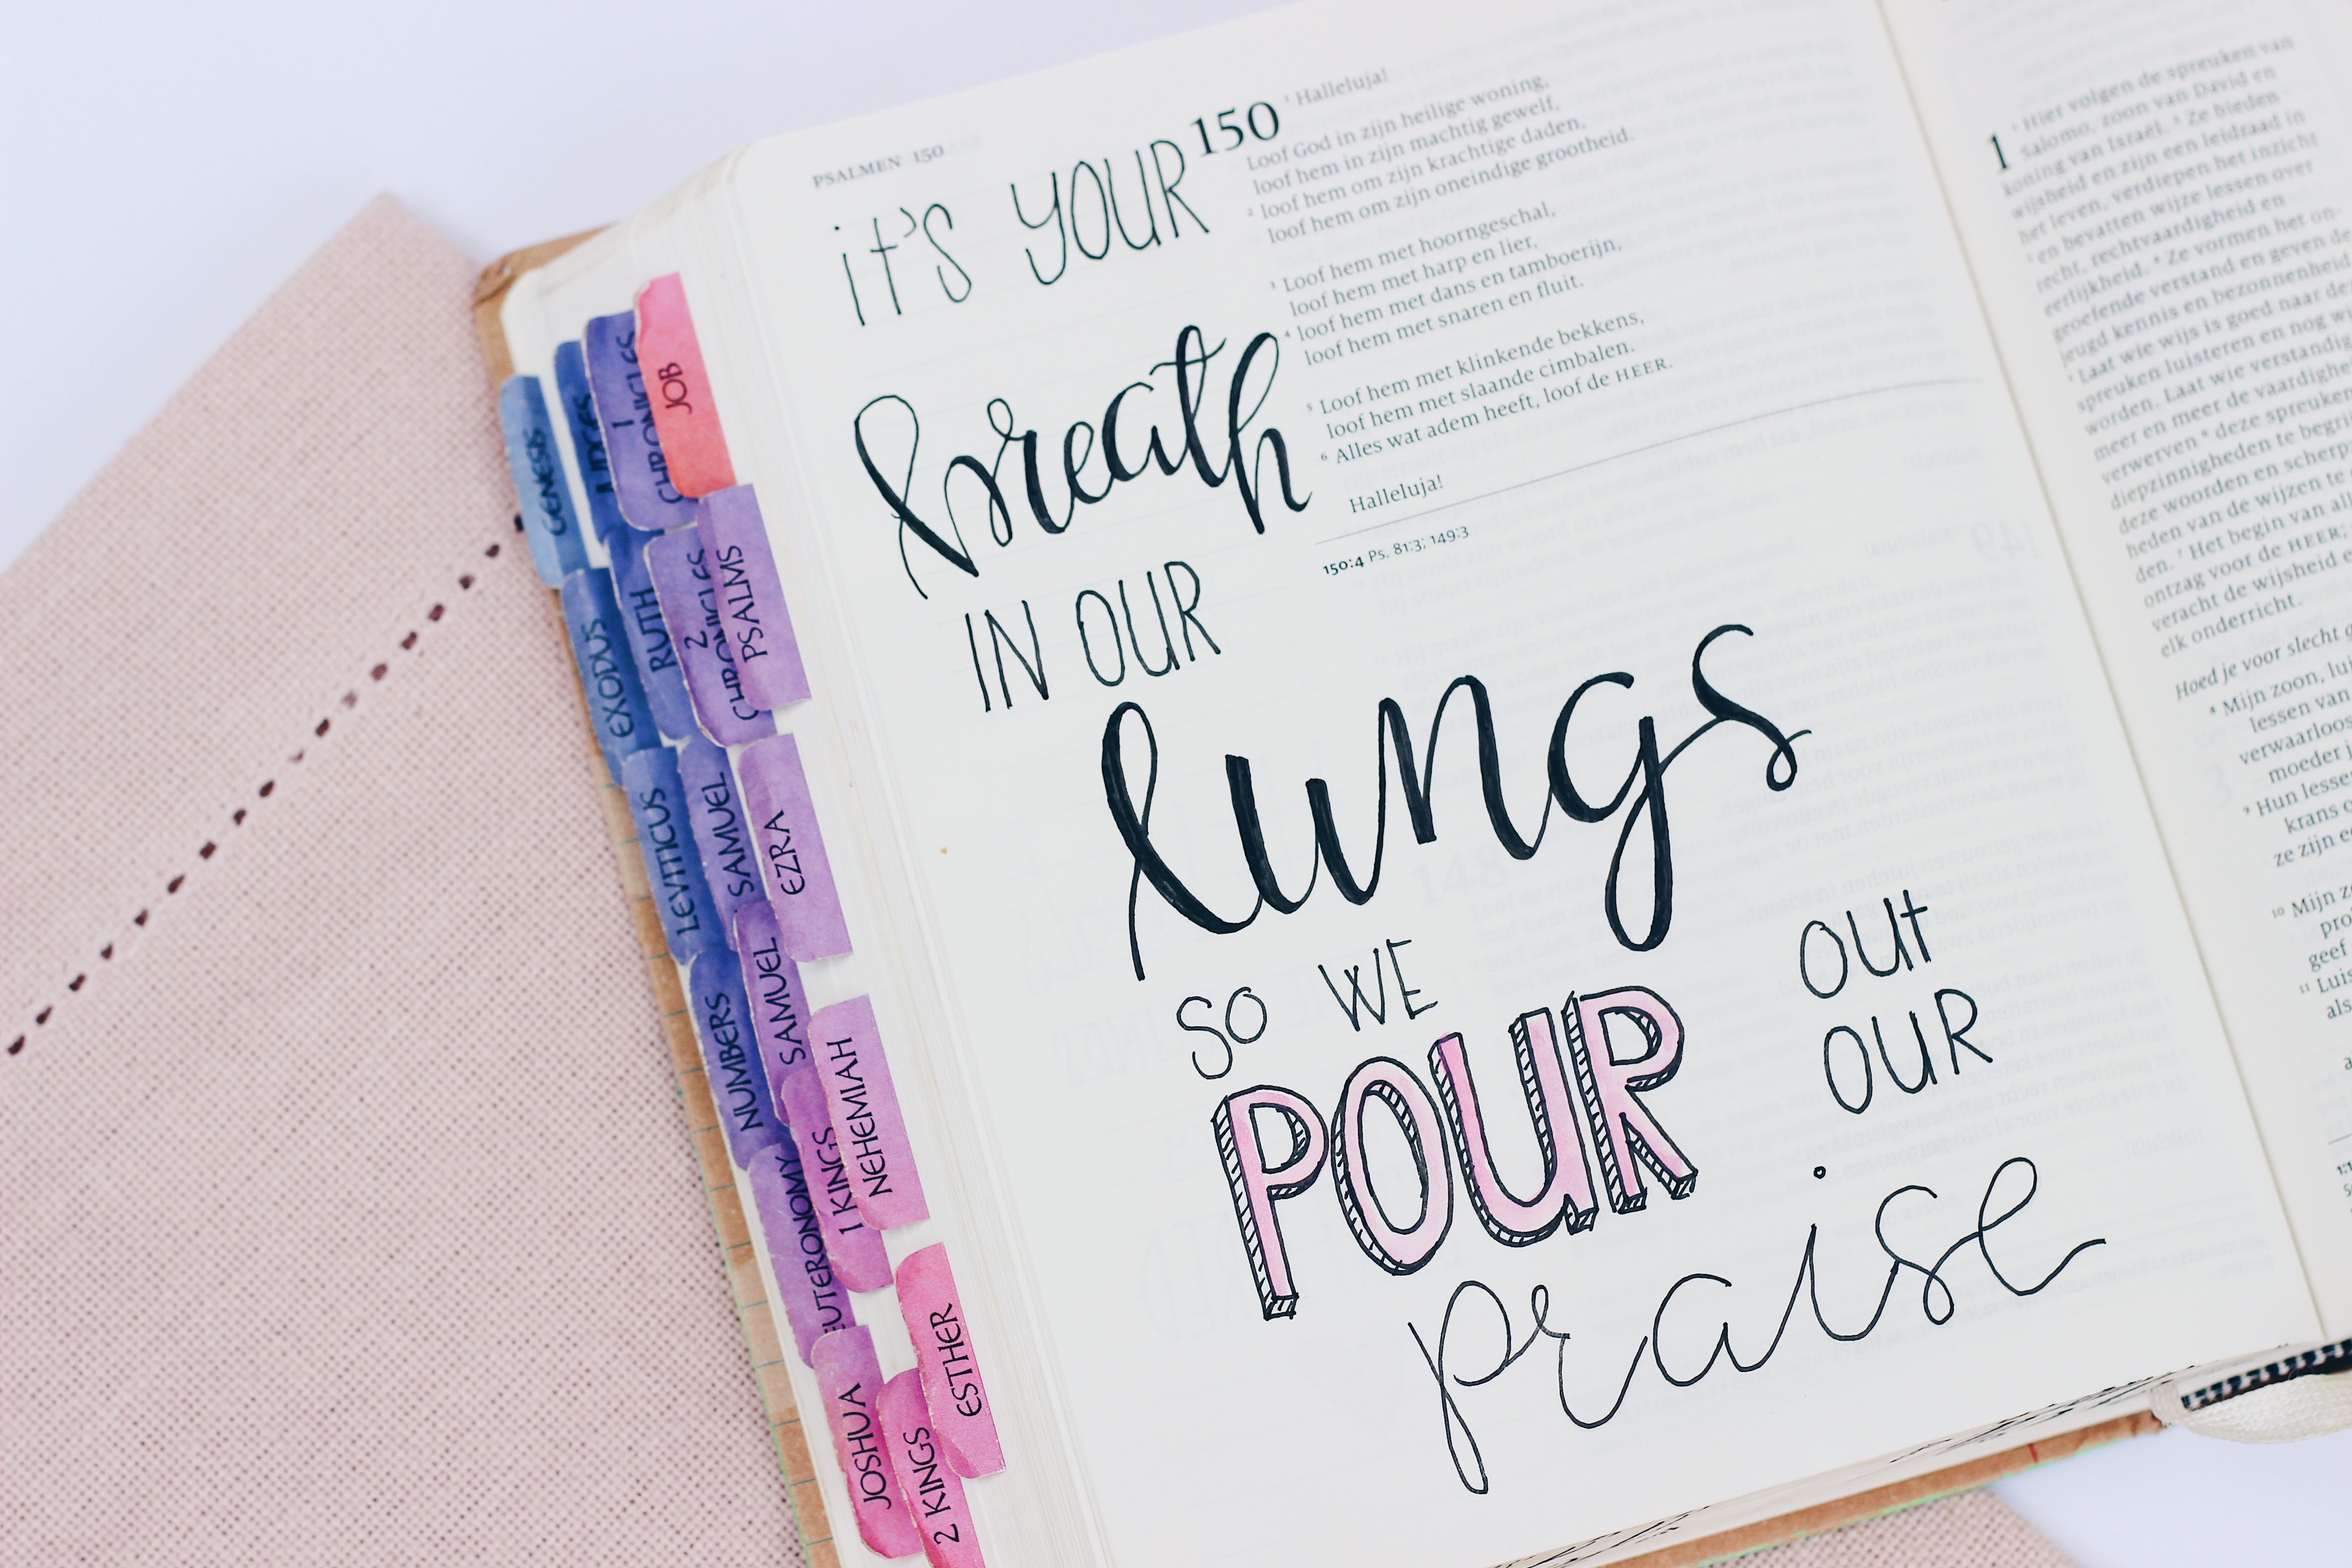 GENESIS
EXODUS
LEVITICUS
NUMBERS
EUTERONOMY
JOSHUA
JUDGES
RUTH
SAMUEL
SAMUEL
1 KINGS
2 KINGS
1 CHRONICLES
2 CHRONICLES
EZRA
NEHEMIAH
ESTHER
JOB
PSALMS
PSALMEN 150
it's YOUR
breath
IN OUR
lungs
SO WE
POUR
OUt
OUR
praise
150
1 Halleluja!
Loof God in zijn heilige woning,
loof hem in zijn machtig gewelf,
2 loof hem om zijn krachtige daden,
loof hem om zijn oneindige grootheid.
3 Loof hem met hoorngeschal,
loof hem met harp en lier,
4 loof hem met dans en tamboerijn,
loof hem met snaren en fluit.
5 Loof hem met klinkende bekkens,
loof hem met slaande cimbalen.
6 Alles wat adem heeft, loof de HEER.
Halleluja!
150:4 Ps. 81:3; 149:3
1
1 Hier volgen de spreuken van
Salomo, zoon van David en
koning van Israël. 2 Ze bieden
wijsheid en zijn een leidraad in
het leven, verdiepen het inzicht
3 en bevatten wijze lessen over
recht, rechtvaardigheid en
eerlijkheid. 4 Ze vormen het on-
geoefende verstand en geven de
jeugd kennis en bezonnenheid
5 Laat wie wijs is goed naar deze
spreuken luisteren en nog w
worden. Laat wie verstandig
meer en meer de vaardighe
verwerven 6 deze spreuken
diepzinnigheden te begri
deze woorden en scherp
heden van de wijzen te
den. 7 Het begin van al
ontzag voor de HEER.
veracht de wijsheid e
elk onderricht.
Hoed je voor slecht g
8 Mijn zoon, lui
lessen van
verwaarloos
moeder j
9 Hun lesse
krans o
ze zijn e
10 Mijn zo
pro
geef
11 Luis
als